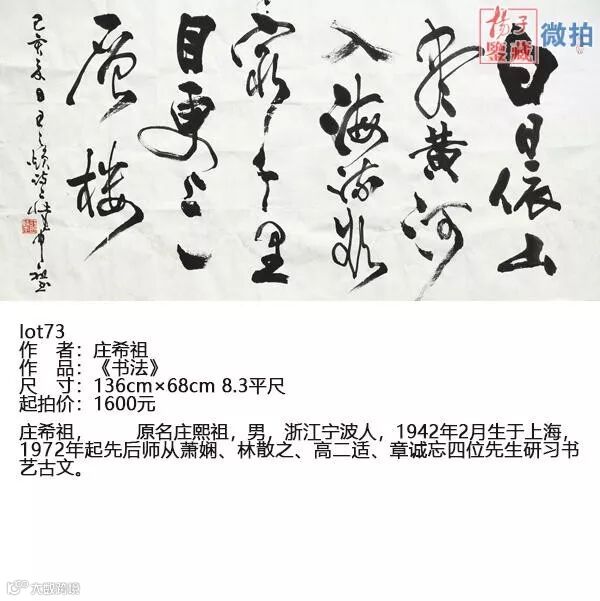 揚子
鑒藏
微拍
白日依山
尽黄河
入海流欲
穷千里
目更上一
层楼
己亥夏日王之
lot73
作 者：庄希祖
作 品：《书法》
尺 寸：136cm×68cm 8.3平尺
起拍价：1600元
庄希祖， 原名庄熙祖，男，浙江宁波人，1942年2月生于上海，
1972年起先后师从萧娴、林散之、高二适、章诚忘四位先生研习书
艺古文。
大数跨境